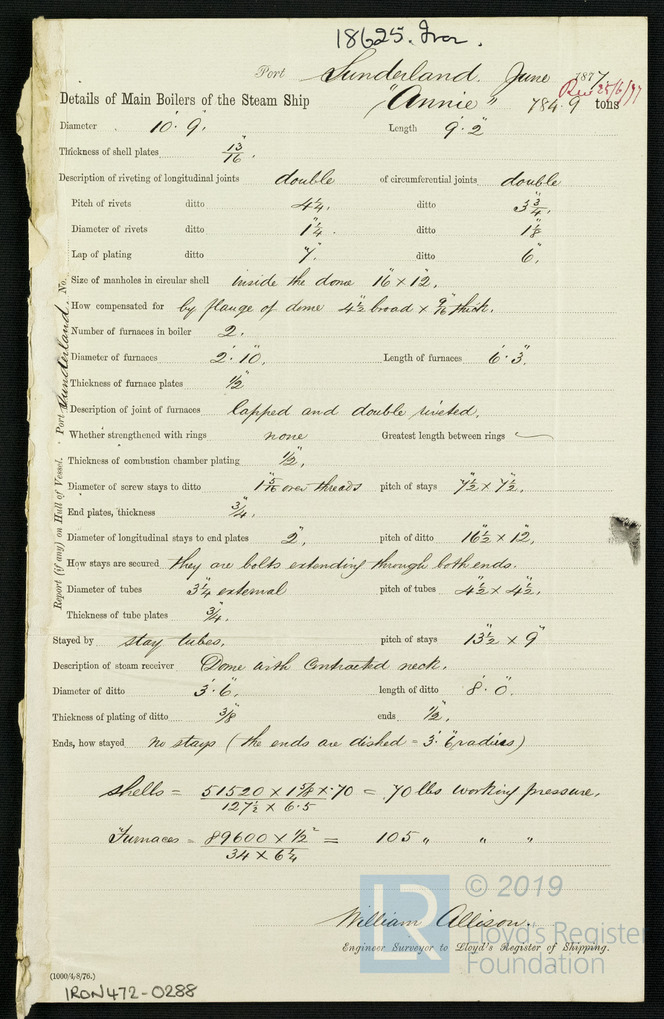 18625. Iron.
Port Sunderland. June 1877
Rec 25/6/77
Details of Main Boilers of the Steam Ship "Annie" 784.9 tons
Diameter 10'. 9". Length 9'. 2"
Thickness of shell plates 13/16".
Description of riveting of longitudinal joints double of circumferential joints double
Pitch of rivets ditto 4¼". ditto 3¾".
Diameter of rivets ditto 1¼". ditto 1⅛"
Lap of plating ditto 7". ditto 6".
Size of manholes in circular shell inside the dome 16" x 12".
How compensated for by flange of dome 4½" broad x 9/16" thick.
Number of furnaces in boiler 2.
Diameter of furnaces 2'. 10". Length of furnaces 6'. 3".
Thickness of furnace plates ½"
Description of joint of furnaces lapped and double riveted.
Whether strengthened with rings none Greatest length between rings
Thickness of combustion chamber plating ½".
Diameter of screw stays to ditto 1 5/16" over threads pitch of stays 7½" x 7½".
End plates, thickness ¾".
Diameter of longitudinal stays to end plates 2". pitch of ditto 16½" x 12".
How stays are secured they are bolts extending through both ends.
Diameter of tubes 3¼" external pitch of tubes 4½" x 4½".
Thickness of tube plates ¾".
Stayed by stay tubes. pitch of stays 13½" x 9"
Description of steam receiver Dome with contracted neck.
Diameter of ditto 3'. 6". length of ditto 8'. 0".
Thickness of plating of ditto ⅜" ends ½".
Ends, how stayed no stays (the ends are dished = 3'. 6" radius)
Shells = 51520 x 1⅝ x .70 / 127½ x 6.5 = 70 lbs working pressure.
Furnaces = 89600 x ½" / 34 x 6¼ = 105 " " "
William Allison.
Engineer Surveyor to Lloyd's Register of Shipping.
(1000/4/8/76.)
IRON472-0288
Report (if any) on Hull of Vessel. Port Sunderland. No.
LR © 2019
Lloyd's Register
Foundation